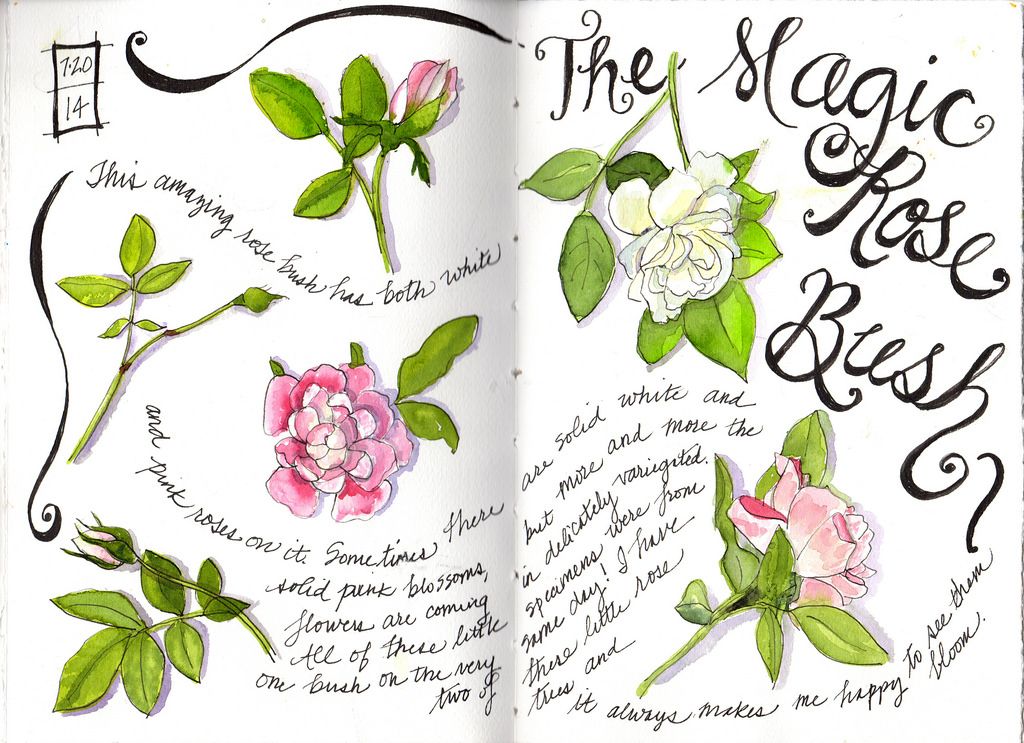 7·20
14
The Magic
Rose
Bush
This amazing rose bush has both white
and pink roses on it. Sometimes there are solid white and
solid pink blossoms, but more and more the
flowers are coming in delicately variegated.
All of these little specimens were from
one bush on the very same day! I have
two of these little rose
trees and
it always makes me happy to see them
bloom.